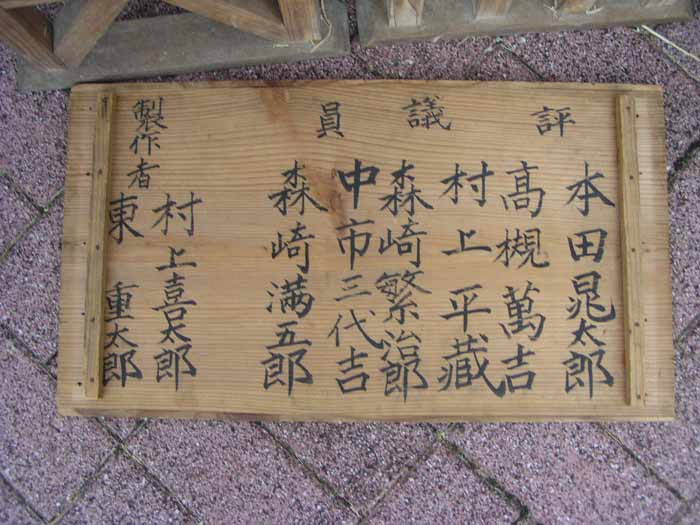 評議員
本田晃太郎
髙槻萬吉
村上平藏
森崎繁治郎
中市三代吉
森崎満五郎
製作者
村上喜太郎
東重太郎